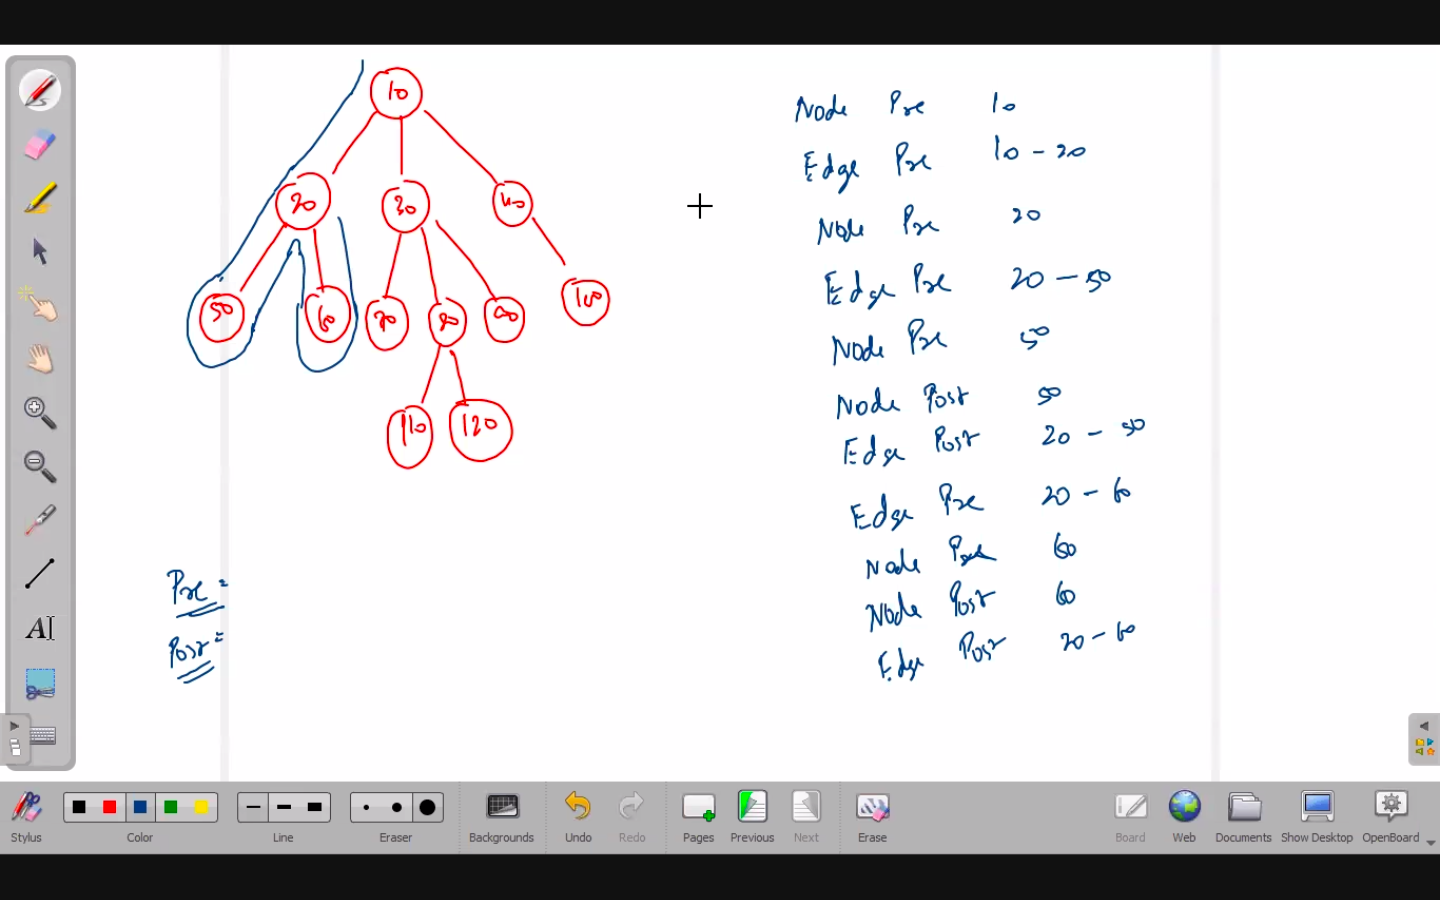 10
20 30 40
50 60 70 80 90 100
110 120
Node Pre 10
Edge Pre 10 - 20
Node Pre 20
Edge Pre 20 - 50
Node Pre 50
Node Post 50
Edge Post 20 - 50
Edge Pre 20 - 60
Node Pre 60
Node Post 60
Edge Post 20 - 60
Pre =
Post =
A
Stylus Color Line Eraser Backgrounds Undo Redo Pages Previous Next Erase Board Web Documents Show Desktop OpenBoard